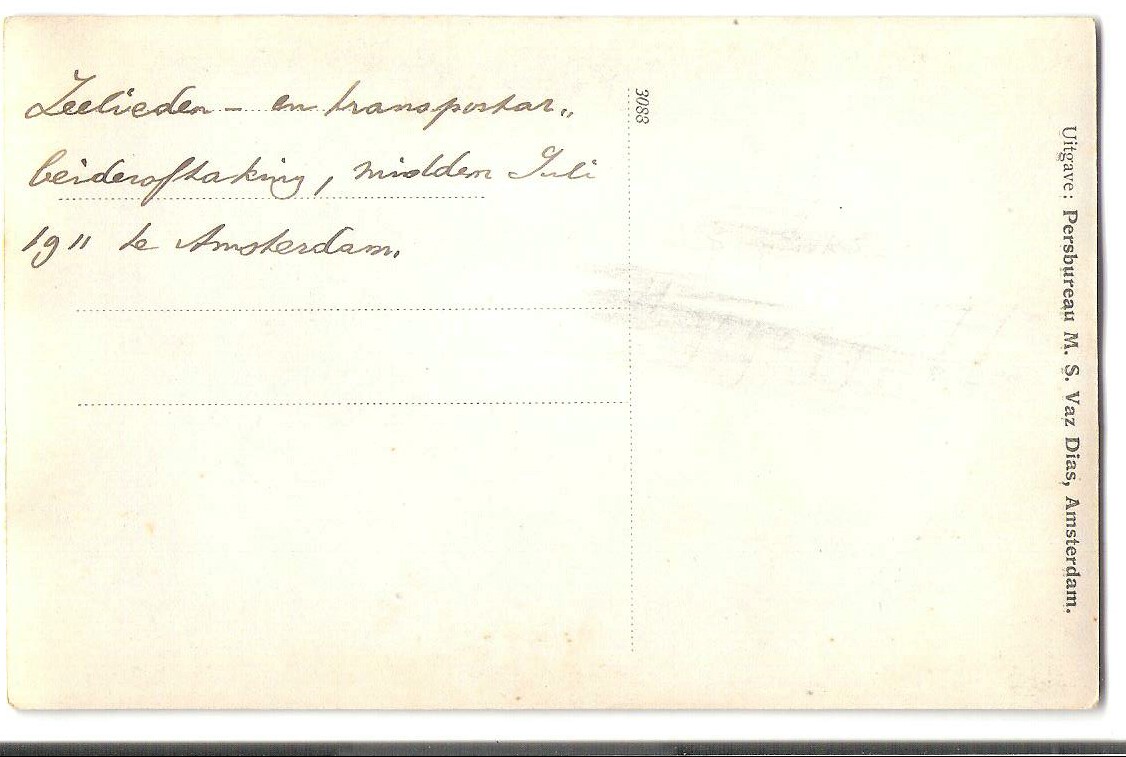 Zeelieden – en transportar„
beiderostaking, midden Juli
1911 te Amsterdam.
3088
Uitgave: Persbureau M. S. Vaz Dias, Amsterdam.